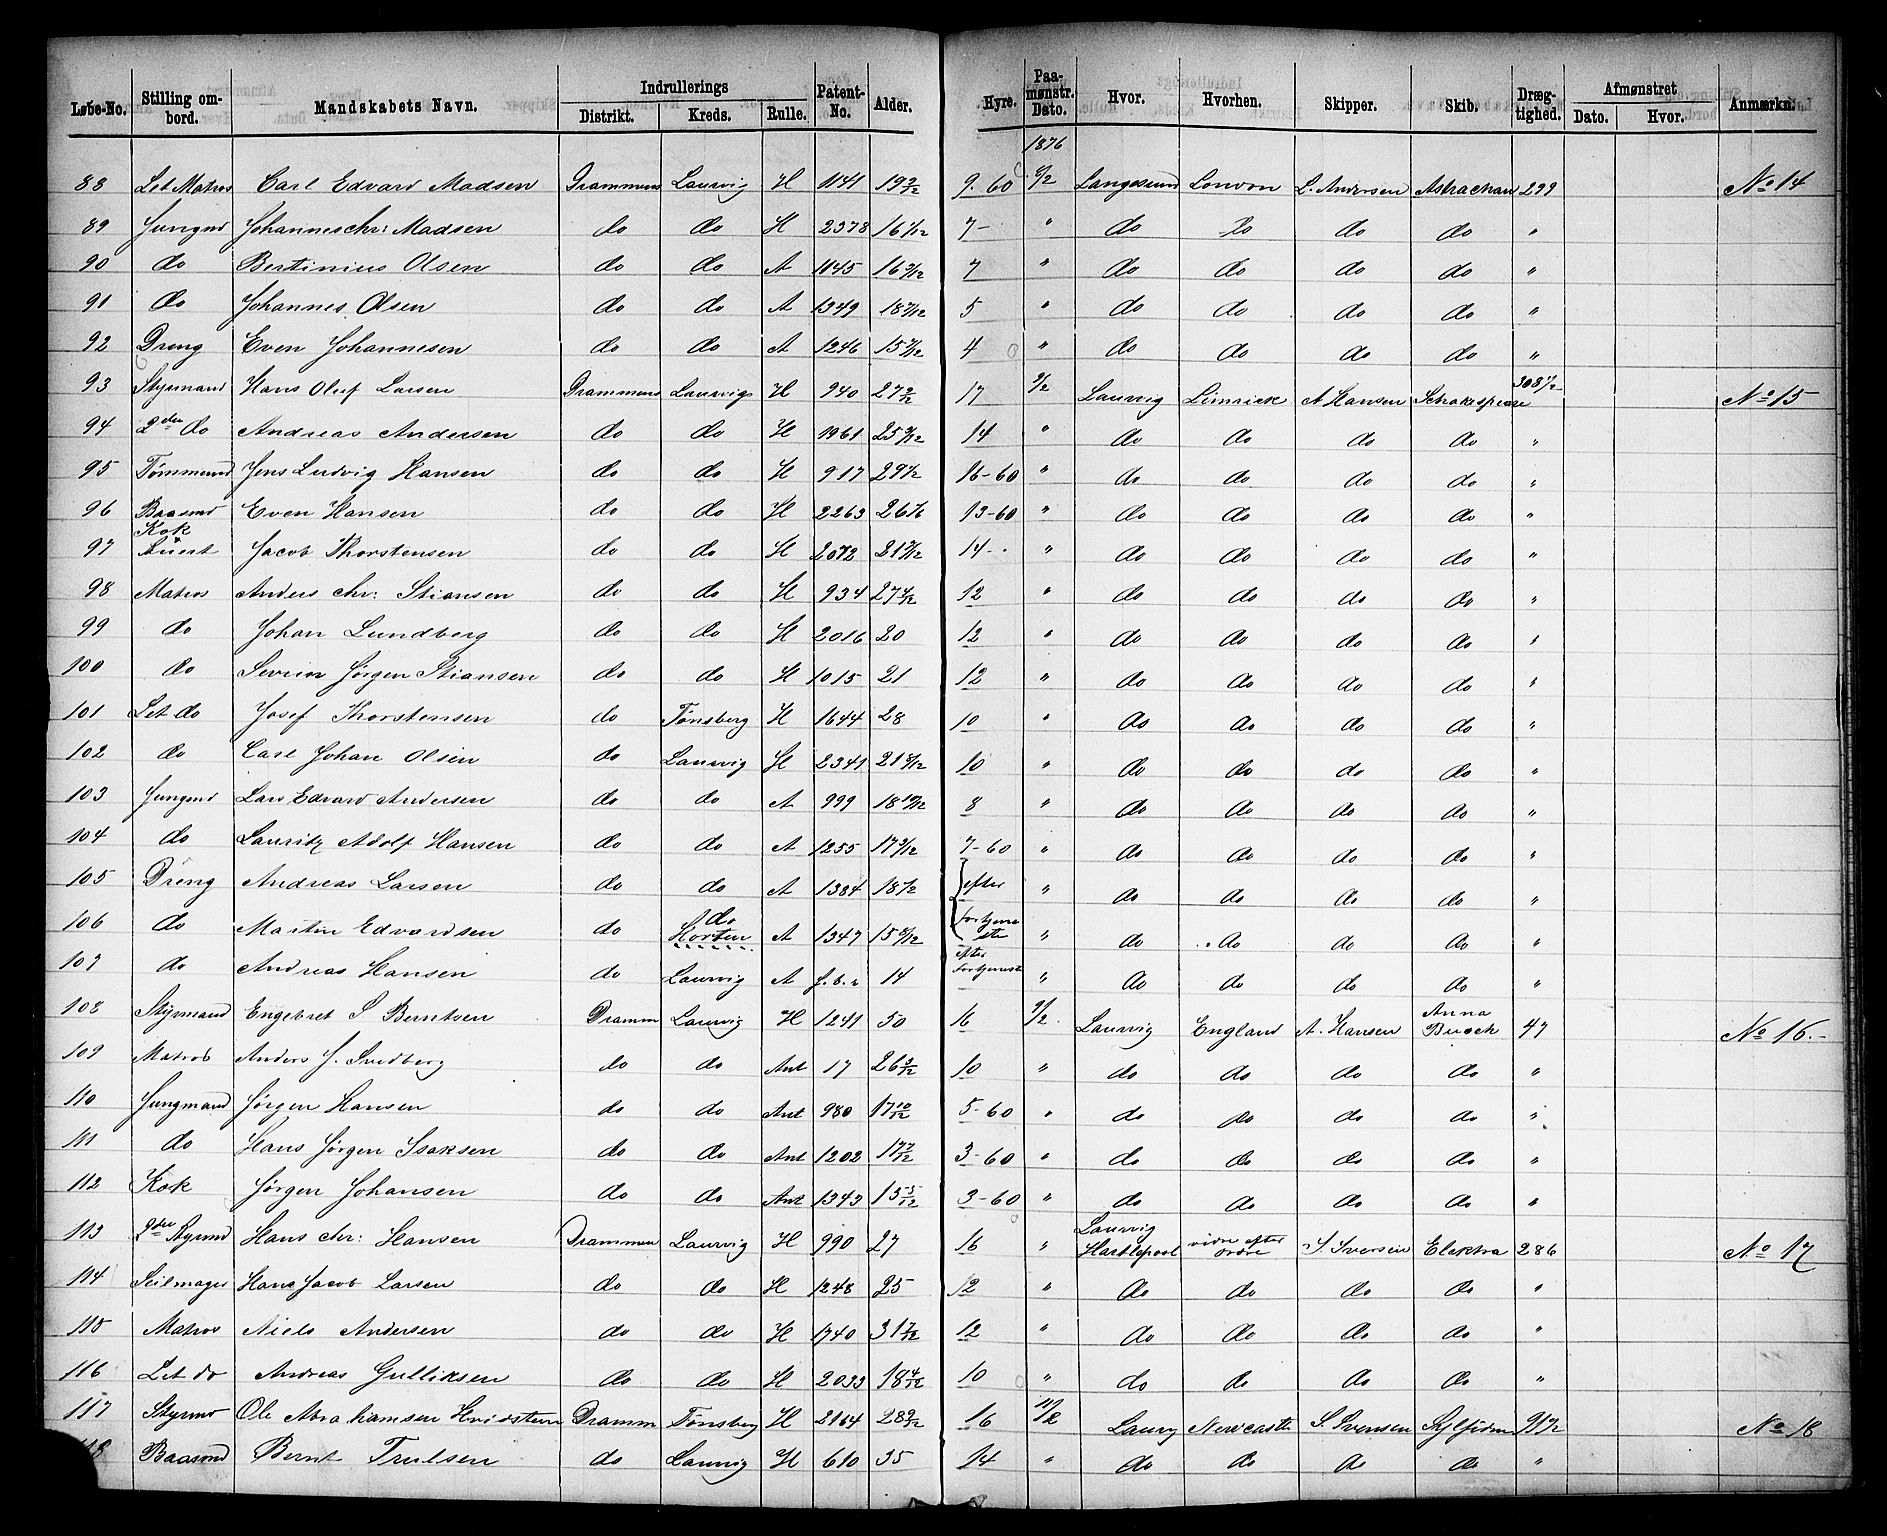 Løbe-No. Stilling ombord. Mandskabets Navn. Indrullerings Distrikt. Kreds. Rulle. Patent-No. Alder. Hyre. Paamønstr. Dato. Hvor. Hvorhen. Skipper. Skib. Drægtighed. Afmønstret Dato. Hvor. Anmærkn:
1876
88 Let Matros Carl Edvard Madsen Drammens Laurvig H 1141 19 9/12 9. 60 Langesund London L. Andersen Astrachan 299 No 14
89 Jungmd Johannes chr: Madsen do do H 2378 7- " do do do do "
90 do Bertinius Olsen do do A 1145 16 3/12 7 " do do do do "
91 do Johannes Olsen do do A 1349 5 " do do do do "
92 Dreng Even Johannesen do do A 1246 4 " do do do do "
93 Styrmand Hans Oluf Larsen Drammens Laurvigs H 940 27 2/12 17 9/2 Laurvig Limrick A Hansen Schakespeare 308 1/2 No 15
94 2den do Andreas Andersen do do H 1961 14 " do do do do "
95 Tømmermd Jens Ludvig Hansen do do H 917 16-60 " do do do do "
96 Baasmd Even Hansen do do H 2263 13-60 " do do do do "
97 Kok Stuert Jacob Thorstensen do do H 2072 14- " do do do do "
98 Matros Anders chr: Stiansen do do H 934 12 " do do do do "
99 do Johan Lundberg do do H 2016 20 12 " do do do do "
100 do Severin Jørgen Stiansen do do H 1015 21 12 " do do do do "
101 Let do Josef Thorstensen do Tønsberg H 1644 28 10 " do do do do "
102 do Carl Johan Olsen do Laurvig H 2341 10 " do do do do "
103 Jungmd Lars Edvard Andersen do do A 999 18 10/12 8 " do do do do "
104 do Lauritz Adolf Hansen do do A 1255 7-60 " do do do do "
105 Dreng Andreas Larsen do do A 1384 efter " do do do do "
106 do Martin Edvardsen do do Horten A 1347 fortjeneste " do do do do "
107 do Andreas Hansen do Laurvig A f. b. " 14 efter fortjeneste " do do do do "
108 Styrmand Engebret S Berntsen Dramm Laurvig H 1241 50 16 9/2 Laurvig England A. Hansen Anna Busch 47 No 16.-
109 Matros Anders J. Svedberg do do Ant 17 26 3/12 10 " do do do do "
110 Jungmand Jørgen Hansen do do Ant 980 17 10/12 5-60 " do do do do "
111 do Hans Jørgen Isaksen do do Ant 1202 17 7/12 3-60 " do do do do "
112 Kok Jørgen Johansen do do Ant 1343 15 5/12 3-60 " do do do do "
113 2den Styrmd Hans chr: Hansen Drammen Laurvig H 990 27 16 " Laurvig Hartlepool vidre efter ordre S. Iversen Elektra 286 No 17
114 Seilmager Hans Jacob Larsen do do H 1248 25 12 " do do do do "
115 Matros Niels Andersen do do H 1740 31 7/12 12 " do do do do "
116 Let do Andreas Gulliksen do do H 2033 18 4/12 10 " do do do do "
117 Styrmd Ole Abrahamsen Hvidsteen Dramm Tønsberg H 2164 28 9/12 16 11/2 Laurv Newcastle S. Svensen 91 1/2 No 18
118 Baasmd Bernt Trulsen do Laurvig H 610 35 14 " do do do do "